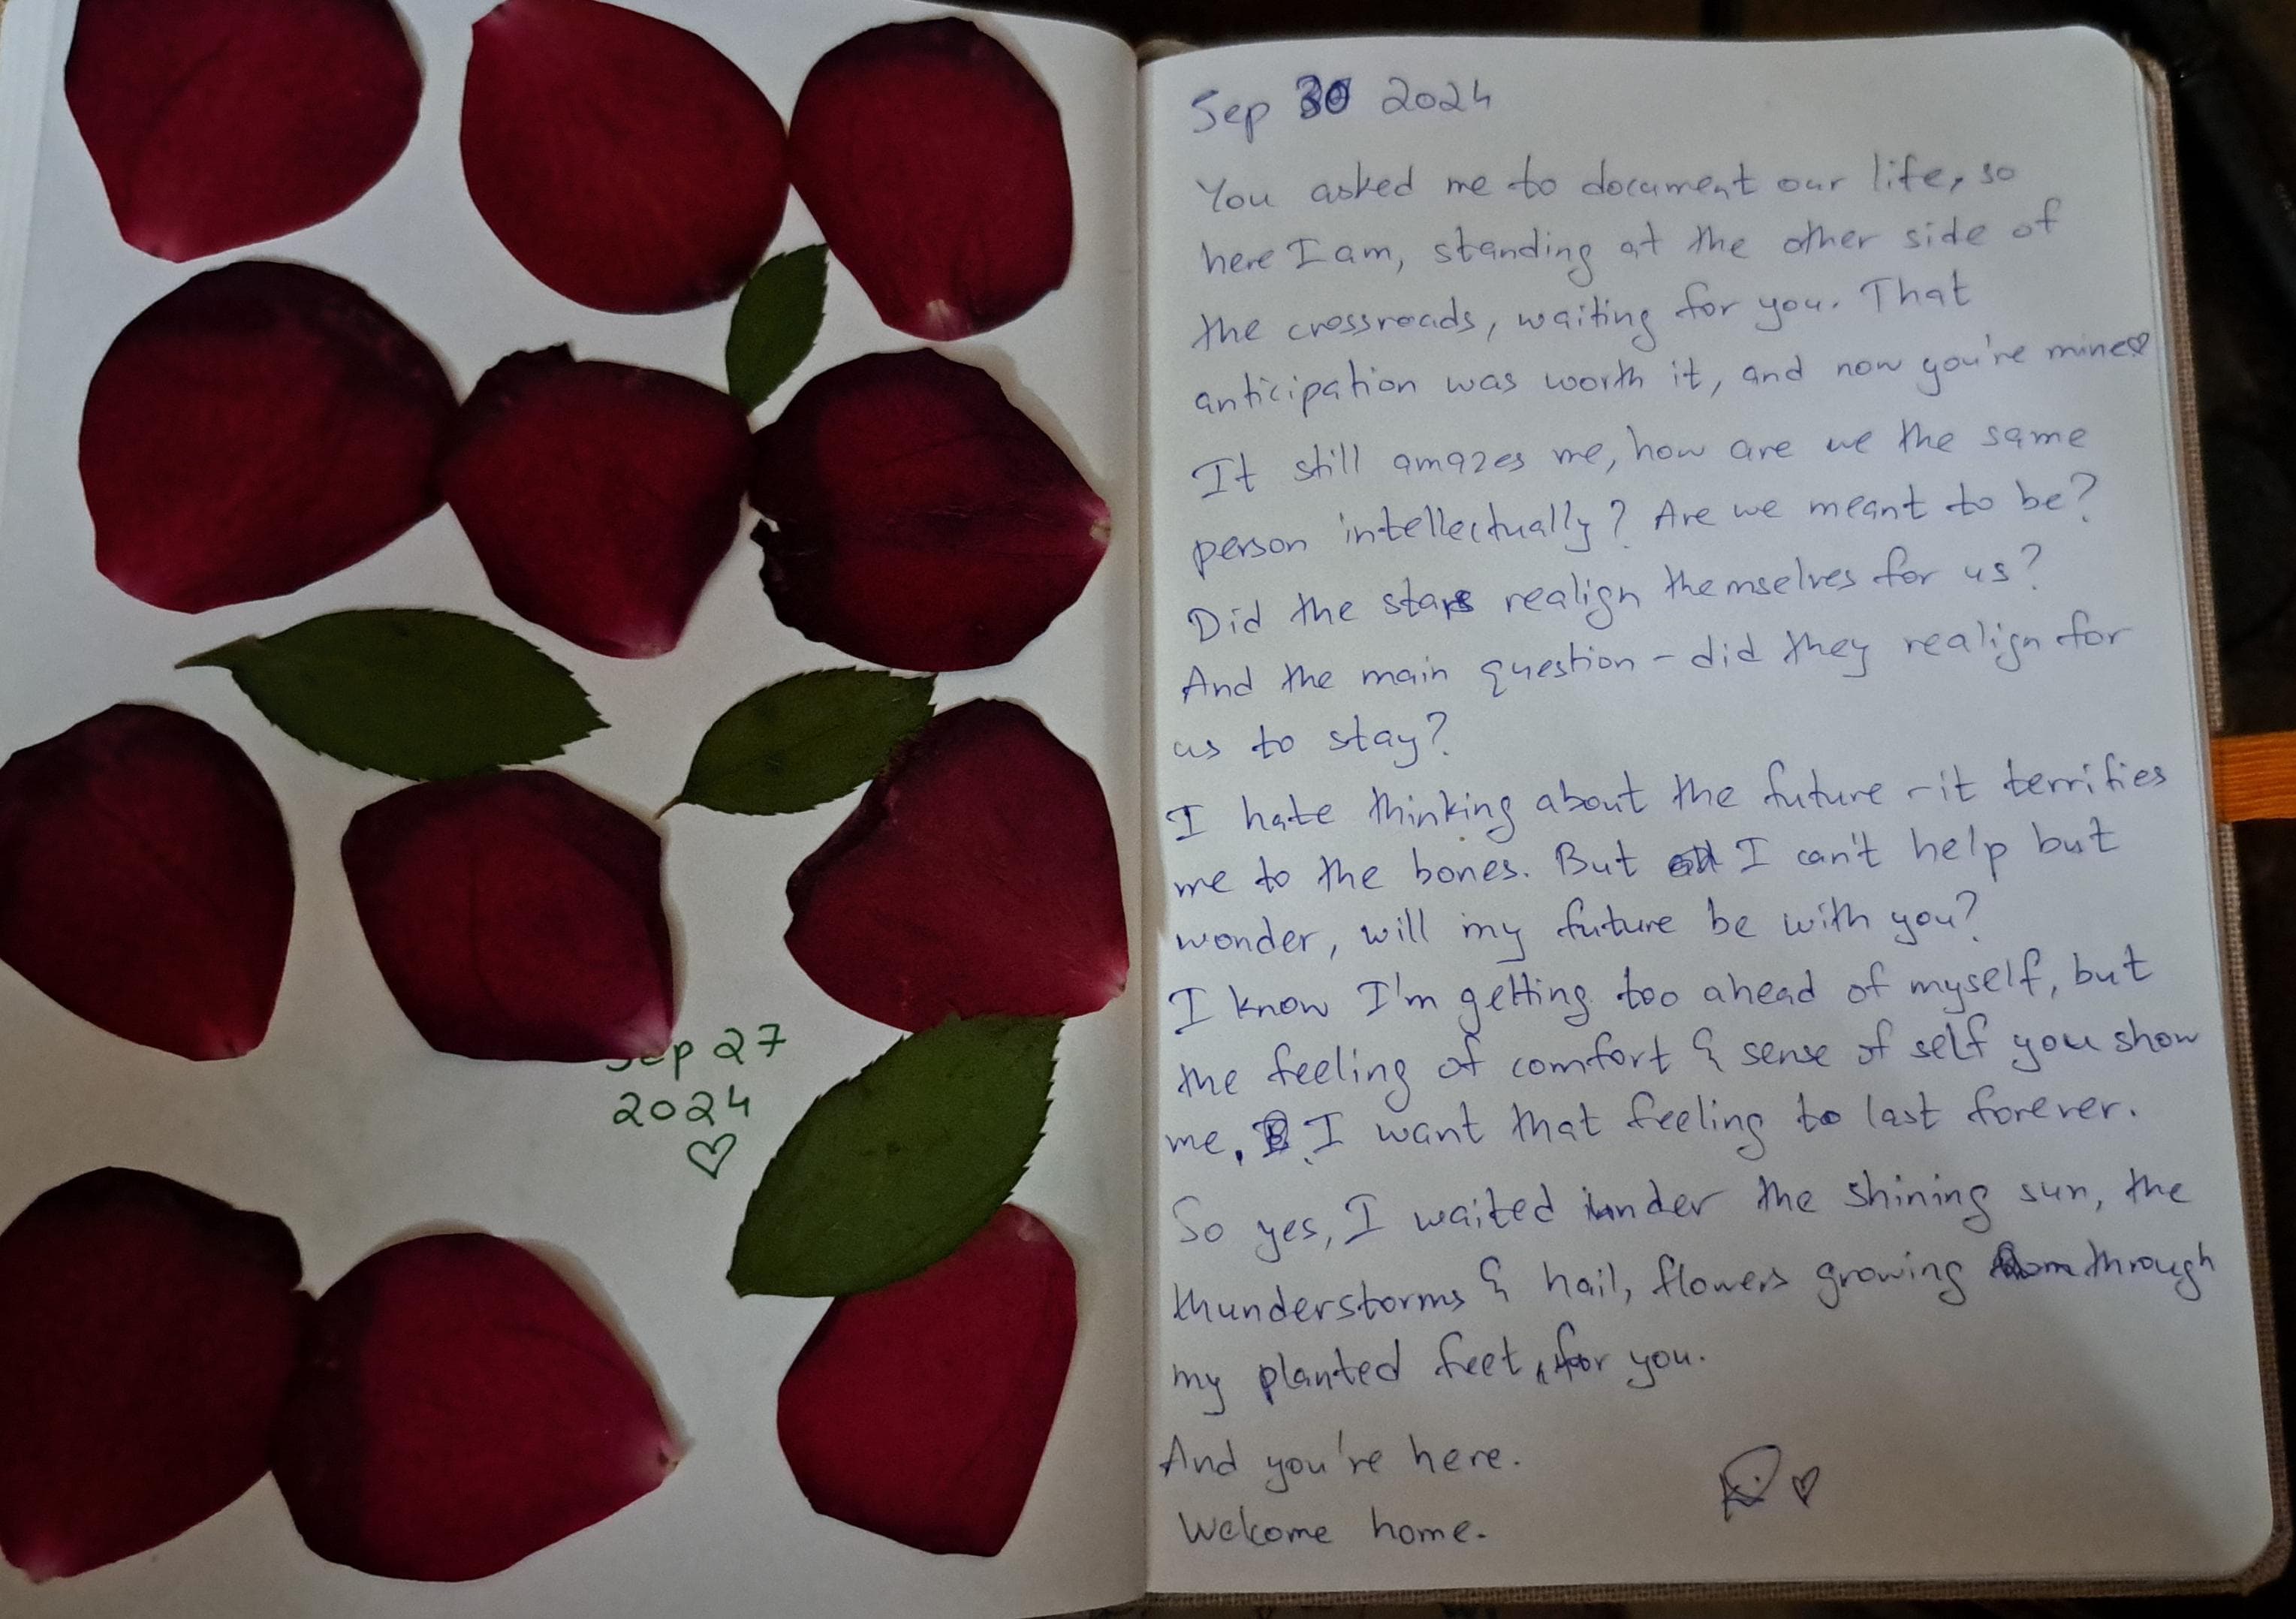 Sep 27
2024
♡
Sep 30 2024
You asked me to document our life, so
here I am, standing at the other side of
the crossroads, waiting for you. That
anticipation was worth it, and now you're mine♡
It still amazes me, how are we the same
person intellectually? Are we meant to be?
Did the stars realign themselves for us?
And the main question - did they realign for
us to stay?
I hate thinking about the future - it terrifies
me to the bones. But I can't help but
wonder, will my future be with you?
I know I'm getting too ahead of myself, but
the feeling of comfort & sense of self you show
me, I want that feeling to last forever.
So yes, I waited under the shining sun, the
thunderstorms & hail, flowers growing through
my planted feet, for you.
And you're here.
Welcome home.
♡